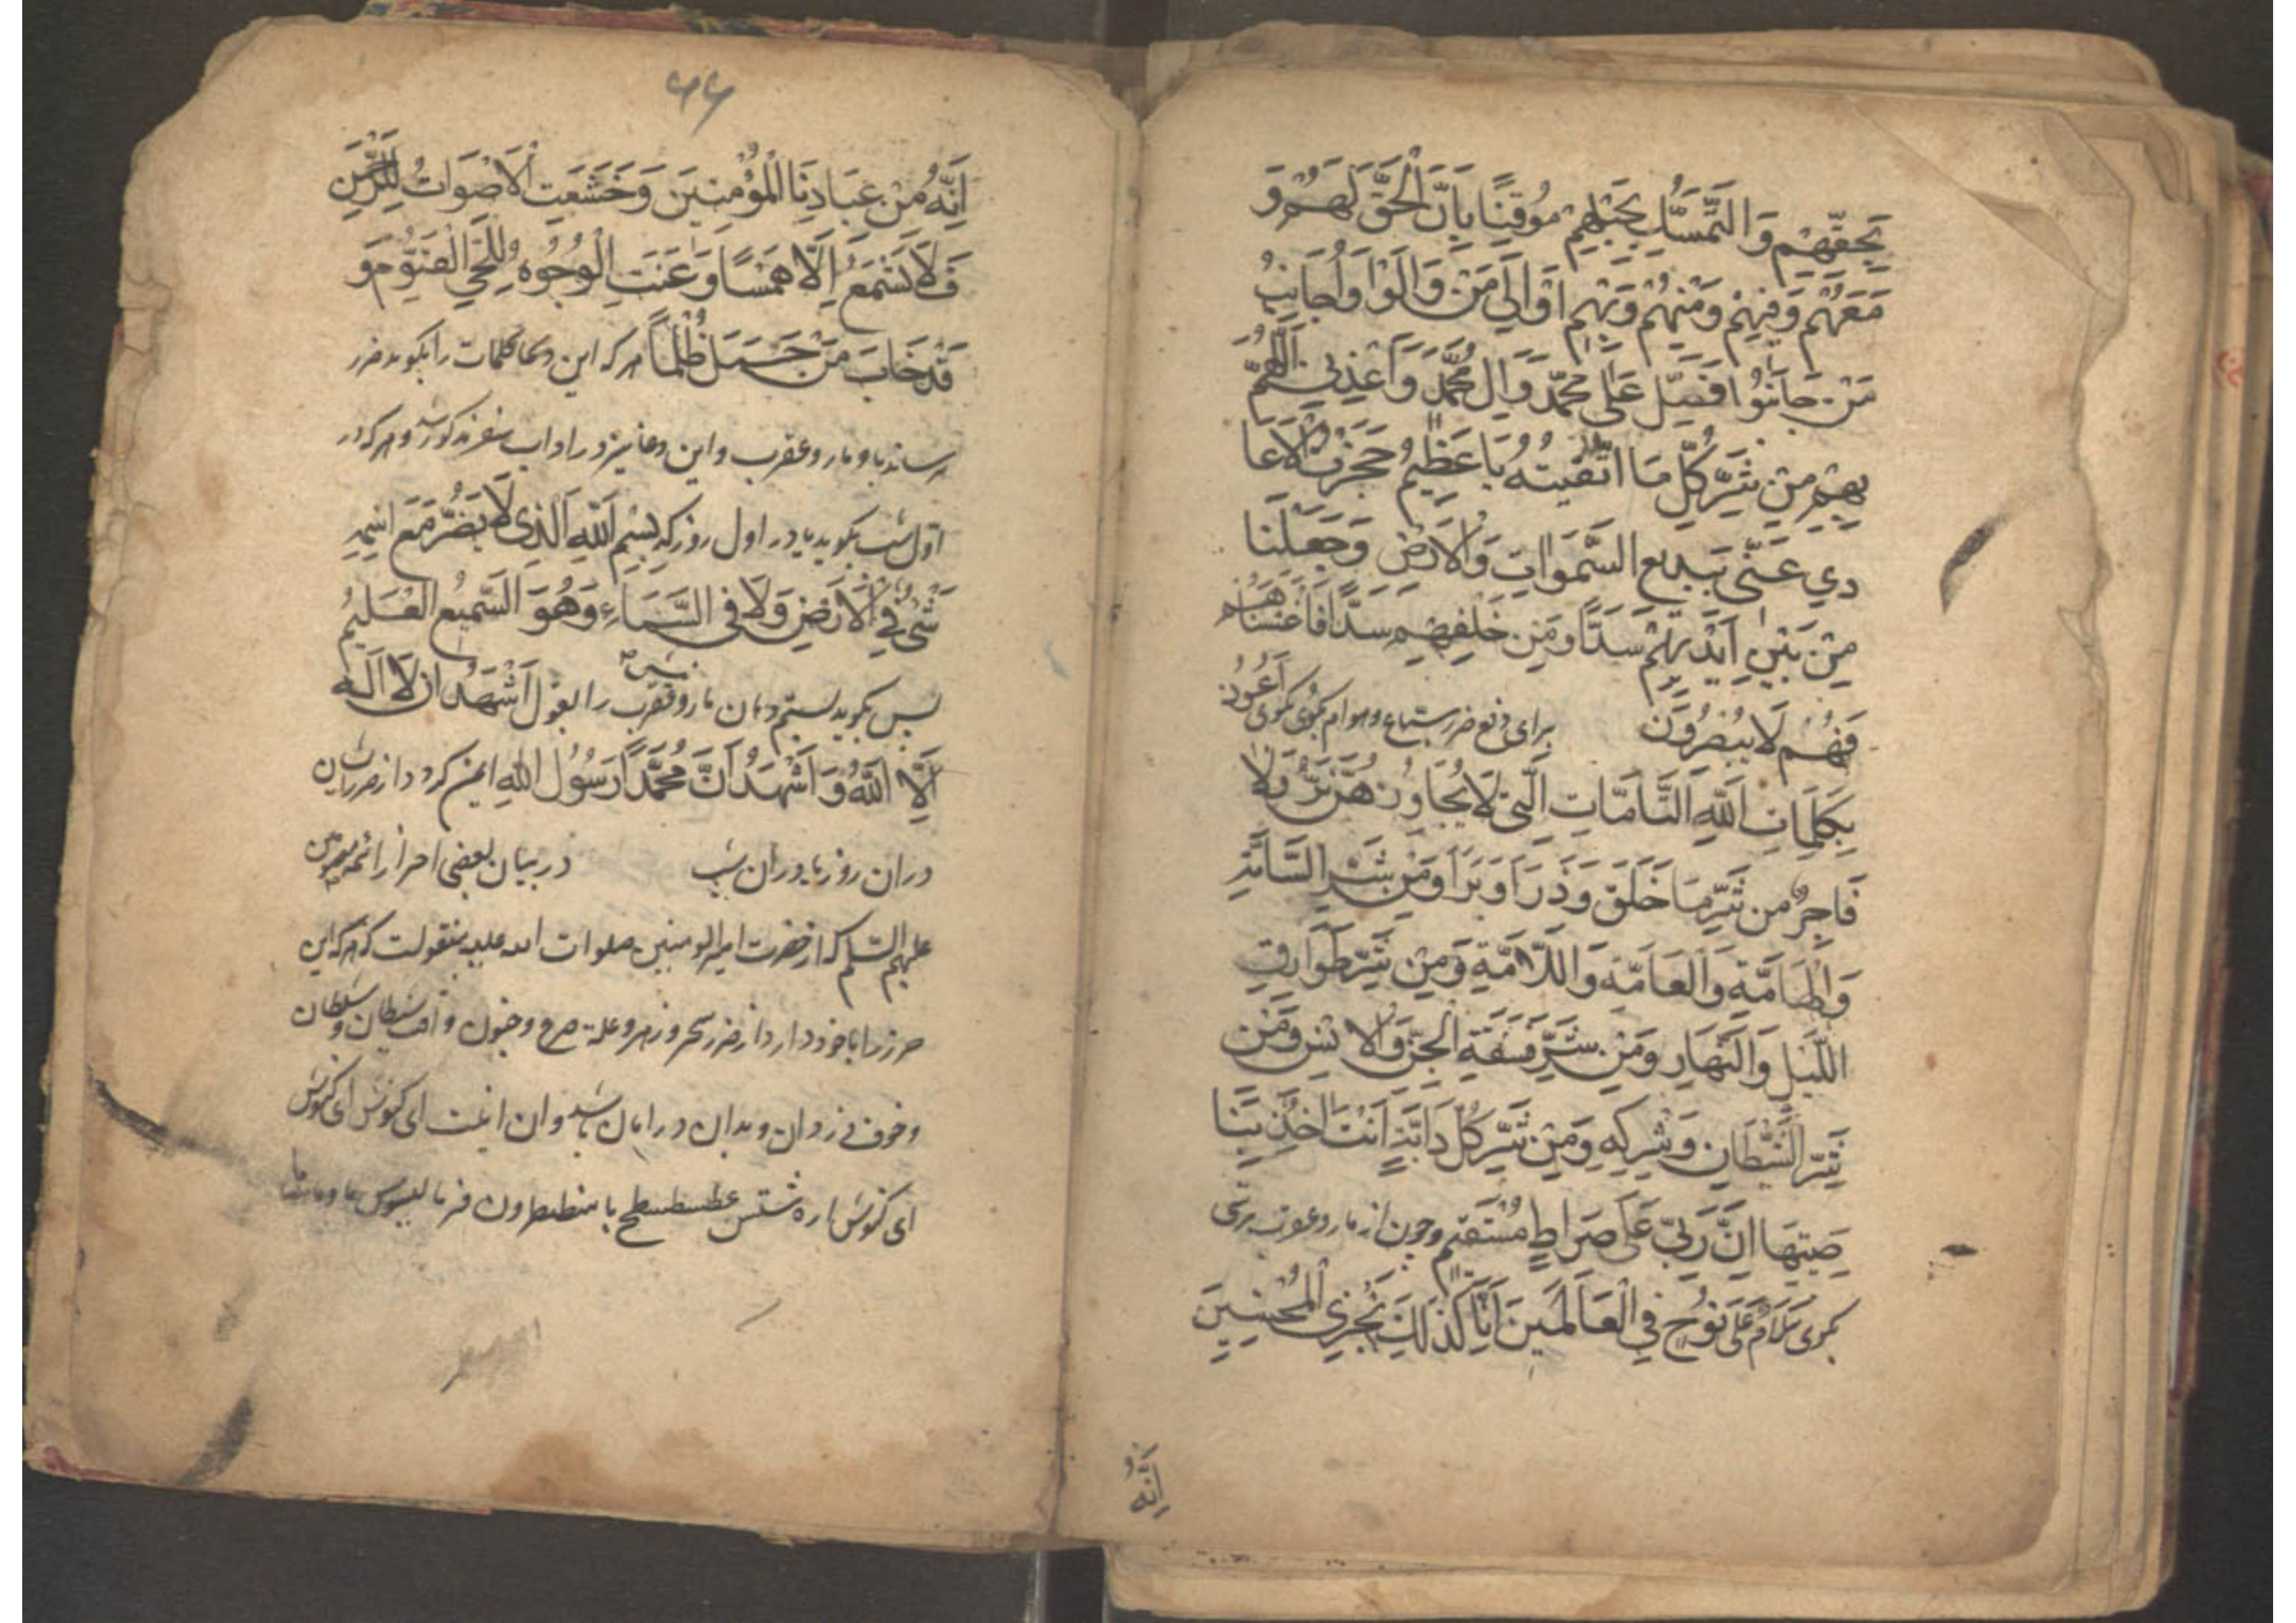 بِحَقِّهِمْ وَالتَّمَسُّكِ بِحَبْلِهِمْ مُوقِنًا بِاَنَّ الْحَقَّ لَهُمْ وَ
مَعَهُمْ وَفِيهِمْ وَمِنْهُمْ وَبِهِمْ اُوَالِي مَنْ وَالَوْا وَاُجَانِبُ
مَنْ جَانَبُوا فَصَلِّ عَلٰى مُحَمَّدٍ وَاٰلِ مُحَمَّدٍ وَاَعِذْنِي اَللّٰهُمَّ
بِهِمْ مِنْ شَرِّ كُلِّ مَا اَتَّقِيهِ يَا عَظِيمُ حَجَزْتُ الْاَعَا
دِي عَنِّي بِبَدِيعِ السَّمٰوَاتِ وَالْاَرْضِ وَجَعَلْنَا
مِنْ بَيْنِ اَيْدِيهِمْ سَدًّا وَمِنْ خَلْفِهِمْ سَدًّا فَاَغْشَيْنَاهُمْ
فَهُمْ لَا يُبْصِرُونَ برای دفع ضرر سباع و هوام بگوی اَعُوذُ
بِكَلِمَاتِ اللّٰهِ التَّامَّاتِ الَّتِي لَا يُجَاوِزُهُنَّ بَرٌّ وَلَا
فَاجِرٌ مِنْ شَرِّ مَا خَلَقَ وَذَرَاَ وَبَرَاَ وَمِنْ شَرِّ السَّامَّةِ
وَالْهَامَّةِ وَالْعَامَّةِ وَاللَّامَّةِ وَمِنْ شَرِّ طَوَارِقِ
اللَّيْلِ وَالنَّهَارِ وَمِنْ شَرِّ فَسَقَةِ الْجِنِّ وَالْاِنْسِ وَمِنْ
شَرِّ الشَّيْطَانِ وَشِرْكِهِ وَمِنْ شَرِّ كُلِّ دَابَّةٍ اَنْتَ اٰخِذٌ بِنَا
صِيَتِهَا اِنَّ رَبِّي عَلٰى صِرَاطٍ مُسْتَقِيمٍ و چون از مار و عقرب ترسی
بگوی سَلَامٌ عَلٰى نُوحٍ فِي الْعَالَمِينَ اِنَّا كَذٰلِكَ نَجْزِي الْمُحْسِنِينَ
اِنَّهُ
۶۶
اِنَّهُ مِنْ عِبَادِنَا الْمُؤْمِنِينَ وَخَشَعَتِ الْاَصْوَاتُ لِلرَّحْمٰنِ
فَلَا تَسْمَعُ اِلَّا هَمْسًا وَعَنَتِ الْوُجُوهُ لِلْحَيِّ الْقَيُّومِ وَ
قَدْ خَابَ مَنْ حَمَلَ ظُلْمًا هر که این کلمات را بگوید ضرر
نرساند باو مار و عقرب و این دعا نیز در اداب سفر مذکور شد و هر که در
اول شب بگوید یا در اول روز که بِسْمِ اللّٰهِ الَّذِي لَا يَضُرُّ مَعَ اسْمِهِ
شَيْءٌ فِي الْاَرْضِ وَلَا فِي السَّمَاءِ وَهُوَ السَّمِيعُ الْعَلِيمُ
پس بگوید بستم دهان مار و نیش عقرب را بقول اَشْهَدُ اَنْ لَا اِلٰهَ
اِلَّا اللّٰهُ وَاَشْهَدُ اَنَّ مُحَمَّدًا رَسُولُ اللّٰهِ ایمن گردد از ضررشان
در ان روز یا در ان شب در بیان بعضی احراز ائمه معصومین
علیهم السلام که از حضرت امیر المومنین صلوات الله علیه منقولست که هر که این
حرز را با خود دارد از ضرر سحر و زهر و علت صرع و جنون و افت شیطان و سلطان
و خوف دزدان و بدان در امان باشد و ان اینست ای کنوش ای کنوش
ای کنوش اره شتش عطسطسطح